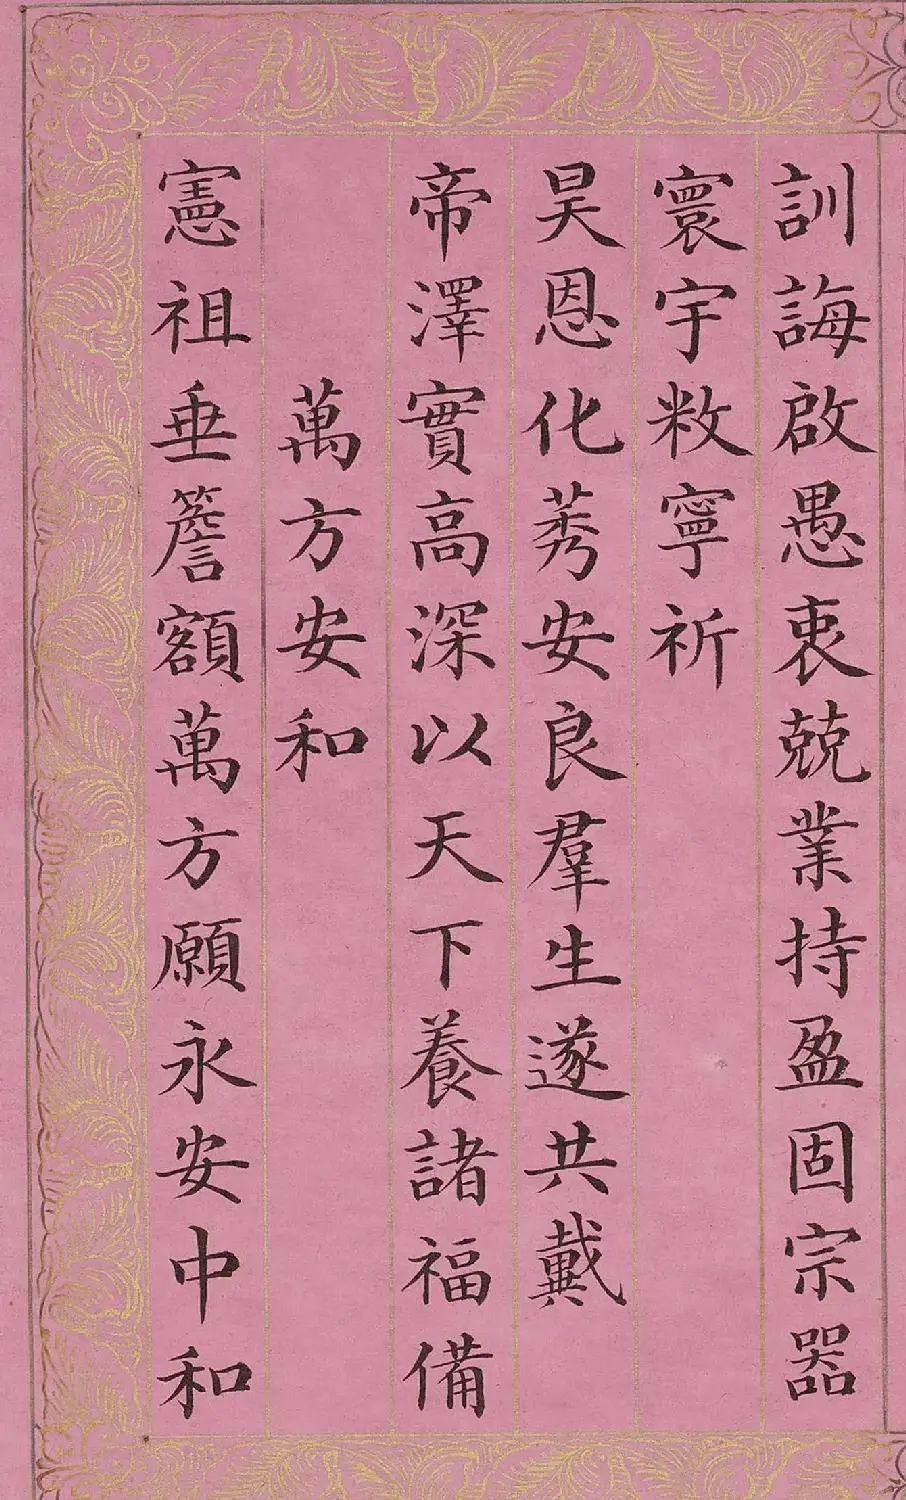 訓誨啟愚衷兢業持盈固宗器
寰宇敉寧祈
昊恩化莠安良羣生遂共戴
帝澤實高深以天下養諸福備
萬方安和
憲祖垂簷額萬方願永安中和